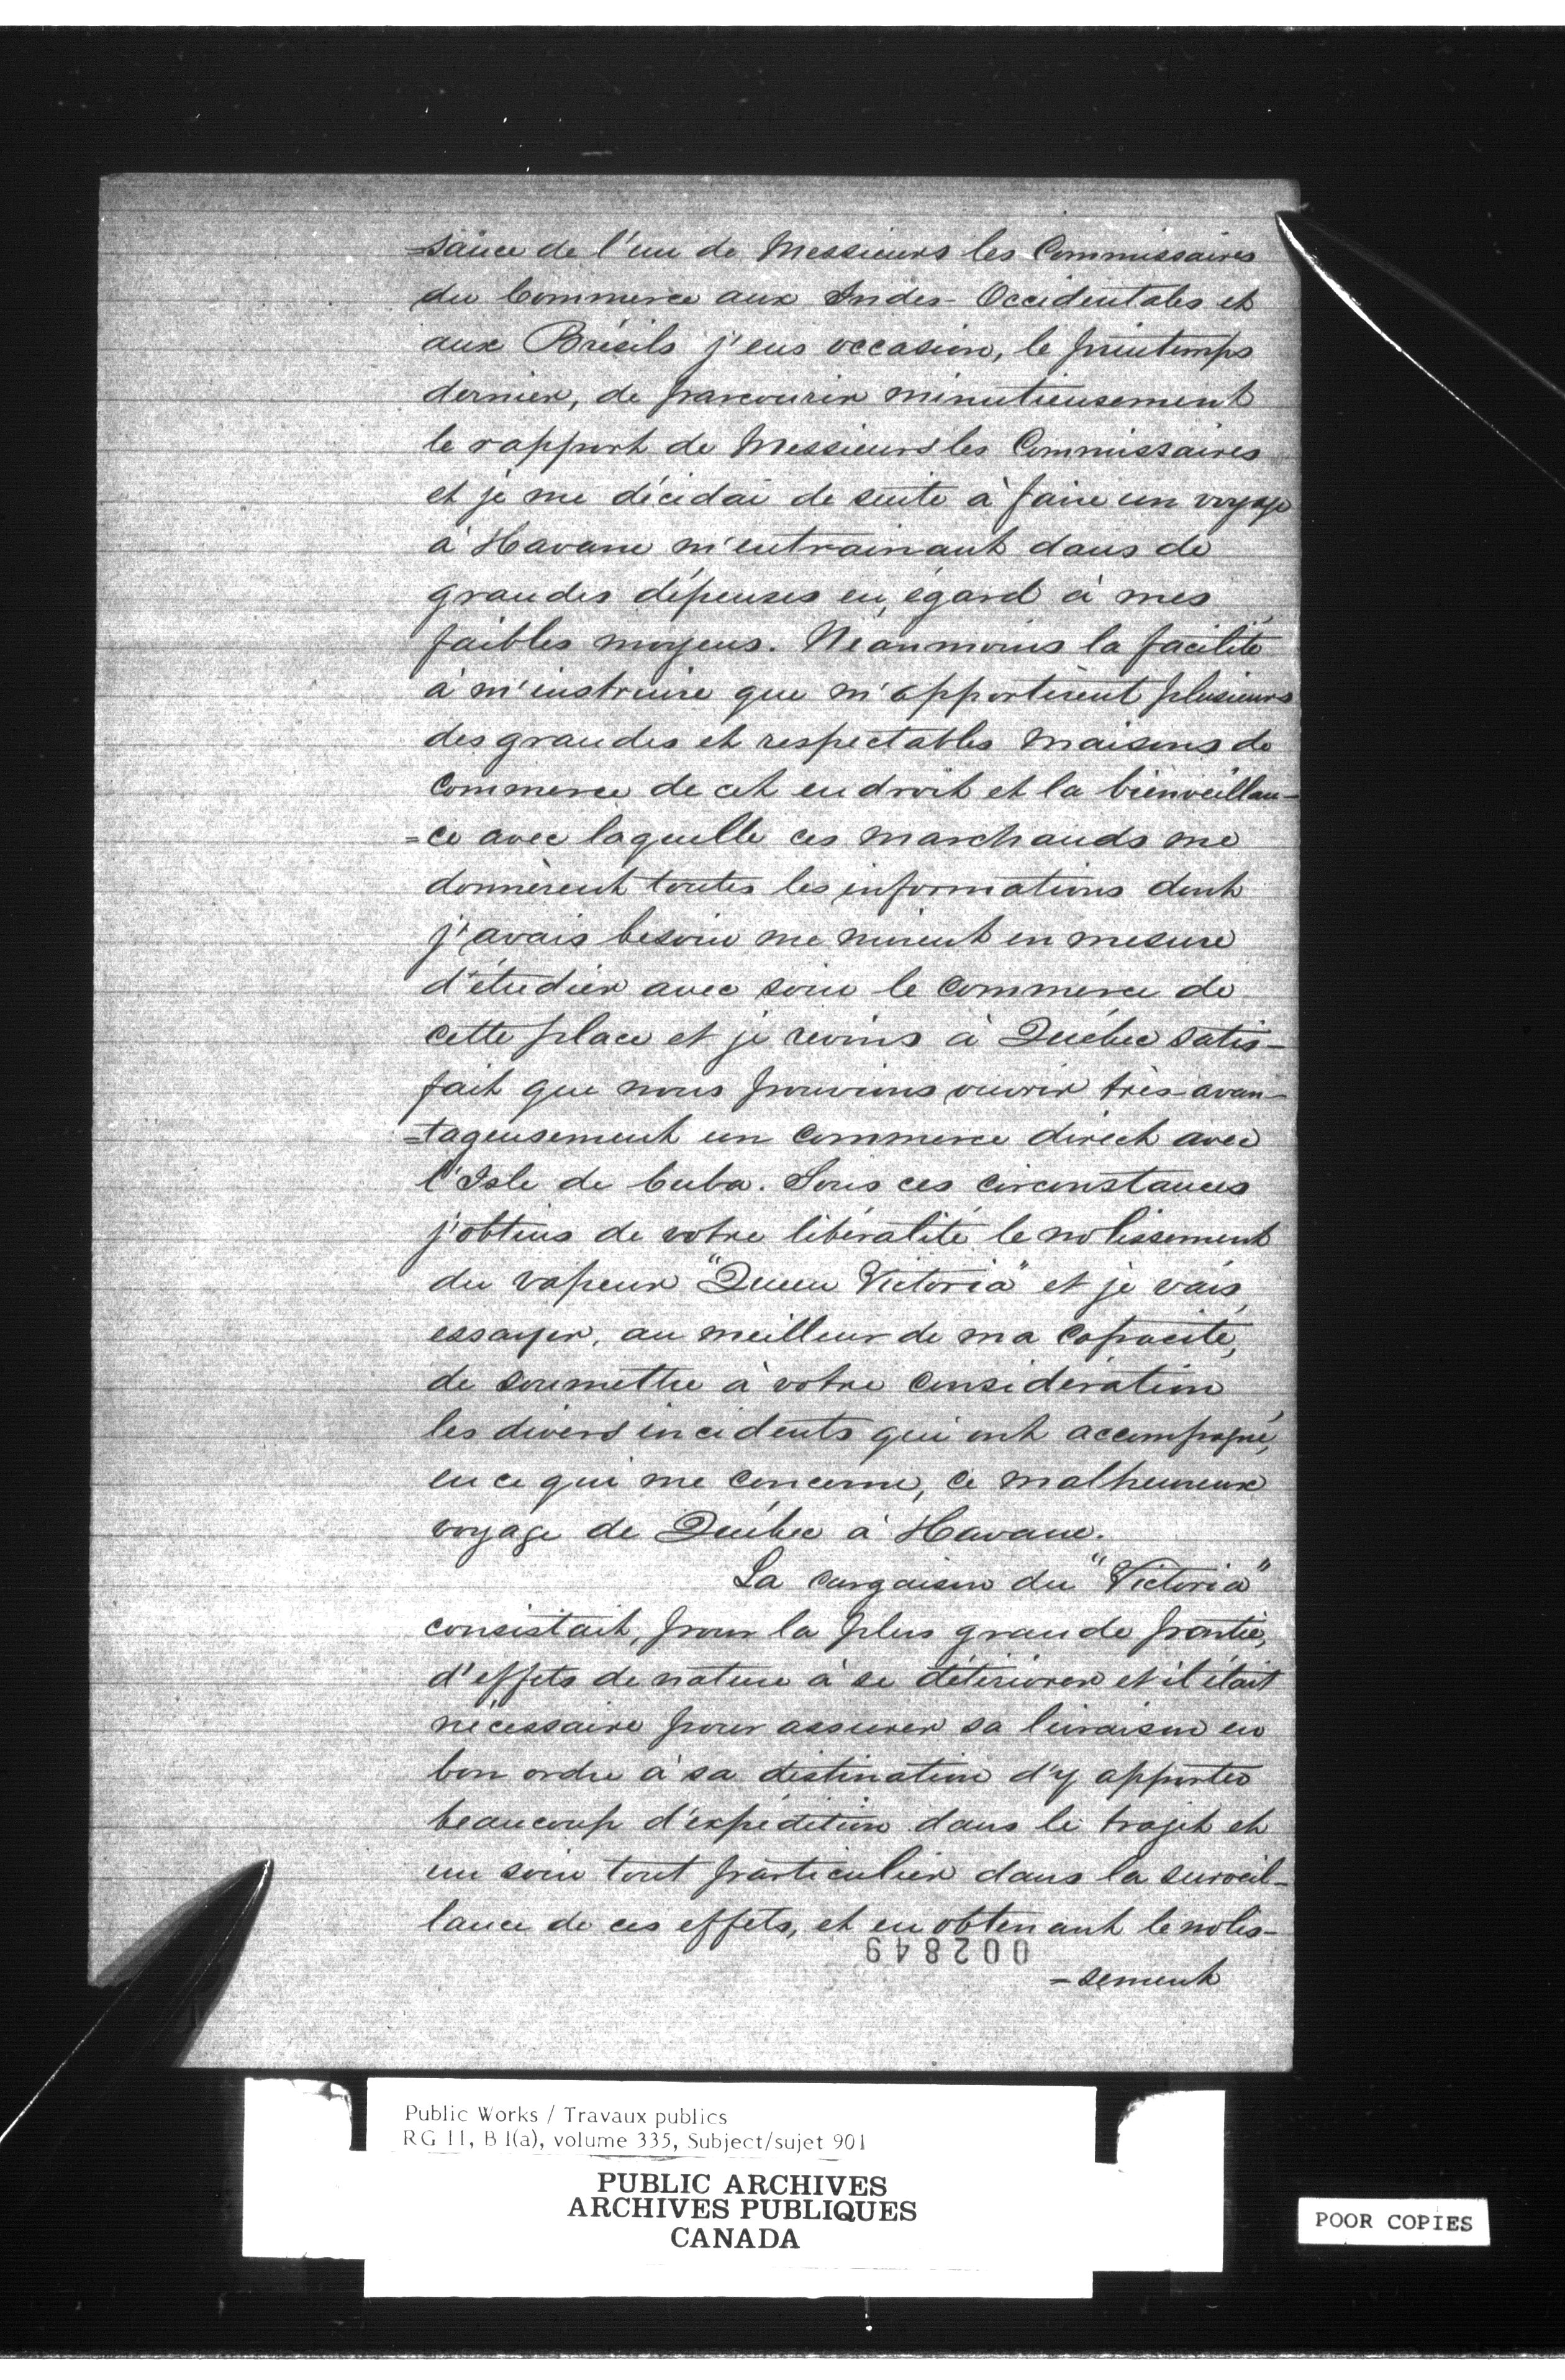 =sance de l'un de Messieurs les Commissaires
du Commerce aux Indes-Occidentales et
aux Brésils j'eus occasion, le printemps
dernier, de parcourir minutieusement
le rapport de Messieurs les Commissaires
et je me décidai de suite à faire un voyage
à Havane m'entrainant dans de
grandes dépenses eu égard à mes
faibles moyens. Neanmoins la facilité
à m'instruire que m'apportèrent plusieurs
des grandes et respectables maisons de
commerce de cet endroit et la bienveillan-
=ce avec laquelle ces marchands me
donnèrent toutes les informations dont
j'avais besoin me mirent en mesure
d'étudier avec soin le commerce de
cette place et je revins à Québec satis-
fait que nous pouvions ouvrir très-avan-
=tageusement un commerce direct avec
l'Isle de Cuba. Sous ces circonstances
j'obtins de votre libéralité le nolissement
du vapeur "Queen Victoria" et je vais
essayer, au meilleur de ma capacité,
de soumettre à votre considération
les divers incidents qui ont accompagné,
en ce qui me concerne, ce malheureux
voyage de Québec à Havane.
La cargaison du "Victoria"
consistait, pour la plus grande partie,
d'effets de nature à se détériorer et il était
nécessaire pour assurer sa livraison en
bon ordre à sa destination d'y apporter
beaucoup d'expédition dans le trajet et
un soin tout particulier dans la surveil-
lance de ces effets, et en obtenant le nolis-
002849
=sement
Public Works / Travaux publics
RG 11, B 1(a), volume 335, Subject/sujet 901
PUBLIC ARCHIVES
ARCHIVES PUBLIQUES
CANADA
POOR COPIES